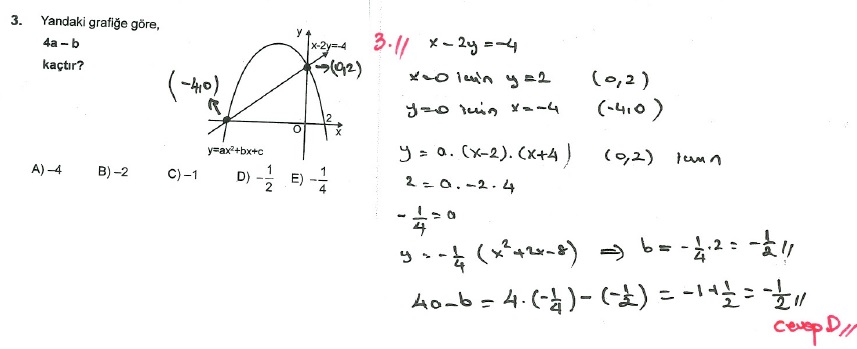 3. Yandaki grafiğe göre,
4a – b
kaçtır?
y
x-2y=-4
→(0,2)
(-4,0)
O
2
x
y=ax²+bx+c
A) –4 B) –2 C) –1 D) –1/2 E) –1/4
3.// x - 2y = -4
x=0 için y=2 (0,2)
y=0 için x=-4 (-4,0)
y = a.(x-2).(x+4) (0,2) için
2 = a.-2.4
-1/4 = a
y = -1/4 (x²+2x-8) ⇒ b = -1/4.2 = -1/2//
4a-b = 4.(-1/4)-(-1/2) = -1+1/2 = -1/2//
Cevap D//